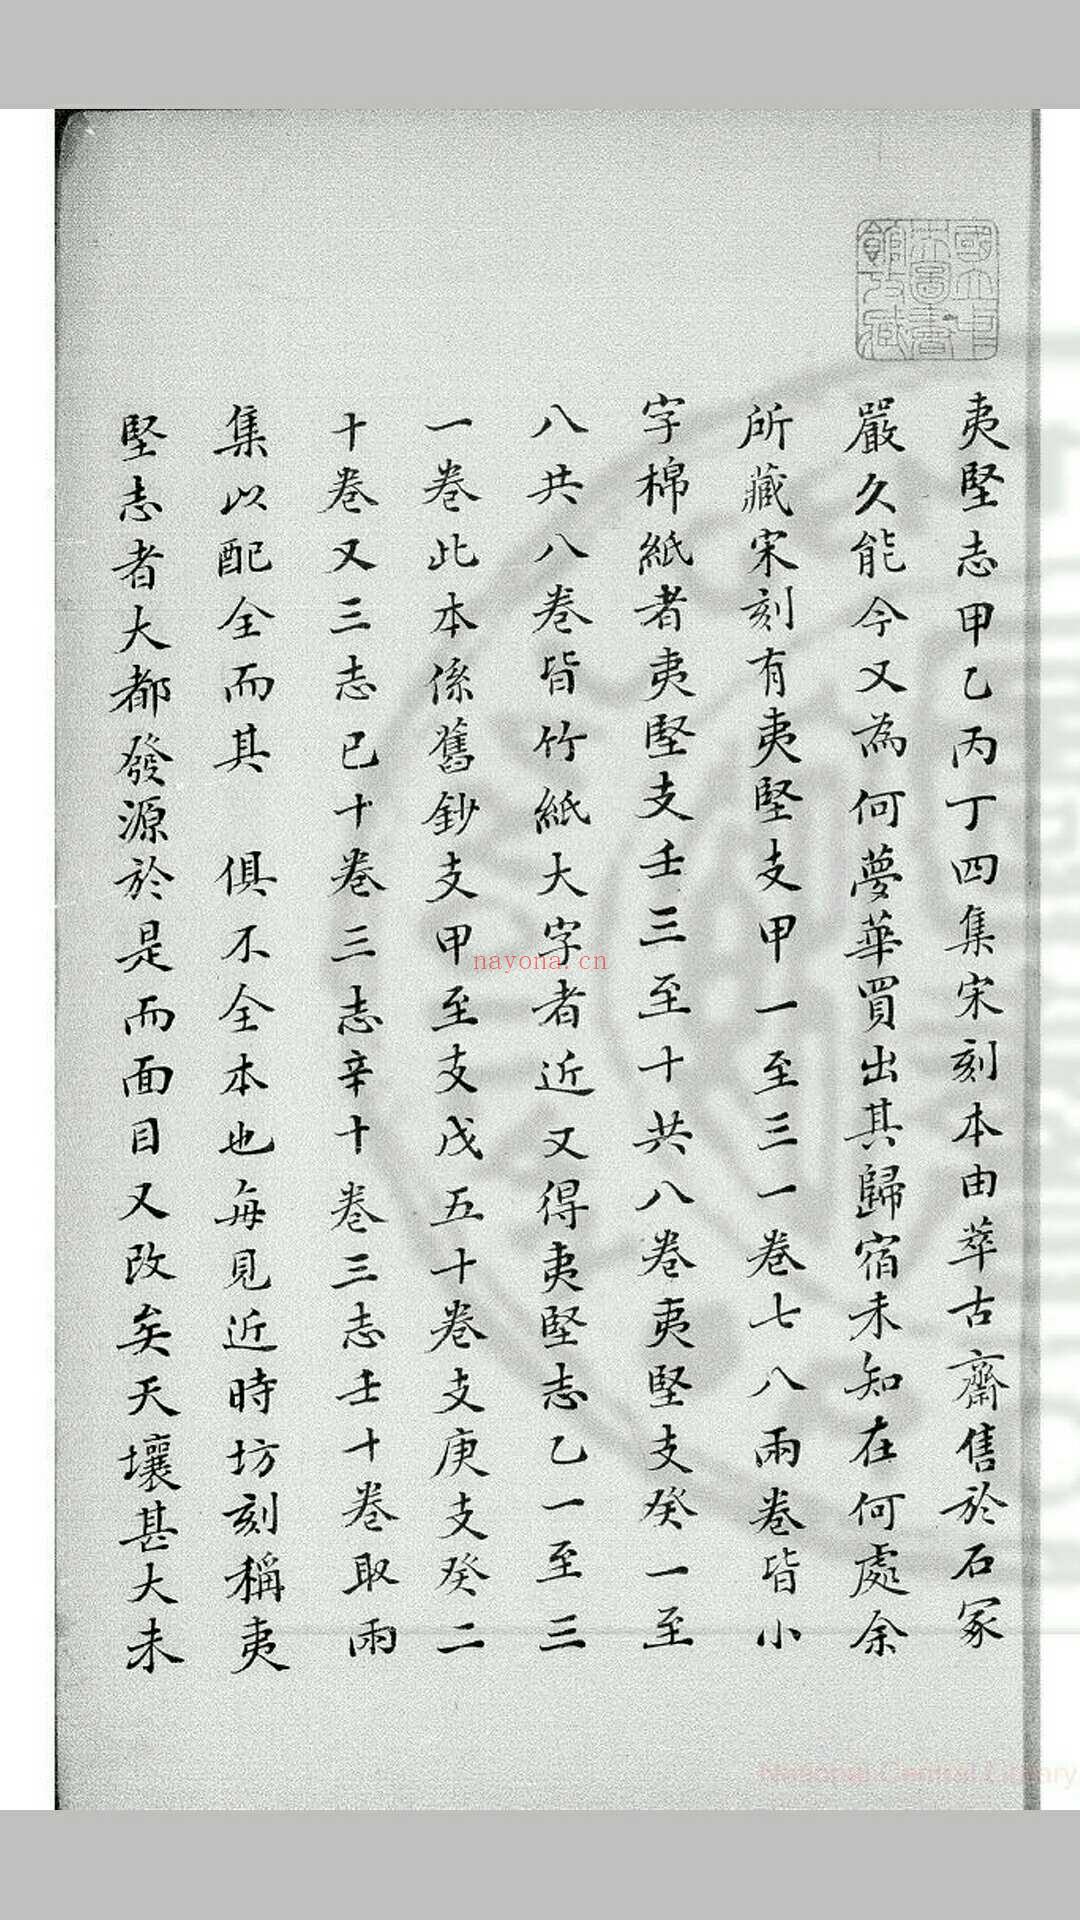 國立中
央圖書
館收藏
夷堅志甲乙丙丁四集宋刻本由萃古齋售於石冢
嚴久能今又為何夢華買出其歸宿未知在何處余
所藏宋刻有夷堅支甲一至三一卷七八兩卷皆小
字棉紙者夷堅支壬三至十共八卷夷堅支癸一至
八共八卷皆竹紙大字者近又得夷堅志乙一至三
一卷此本係舊鈔支甲至支戊五十卷支庚支癸二
十卷又三志已十卷三志辛十卷三志壬十卷取兩
集以配全而其 俱不全本也每見近時坊刻稱夷
堅志者大都發源於是而面目又改矣天壤甚大未
nayona.cn
National Central Library